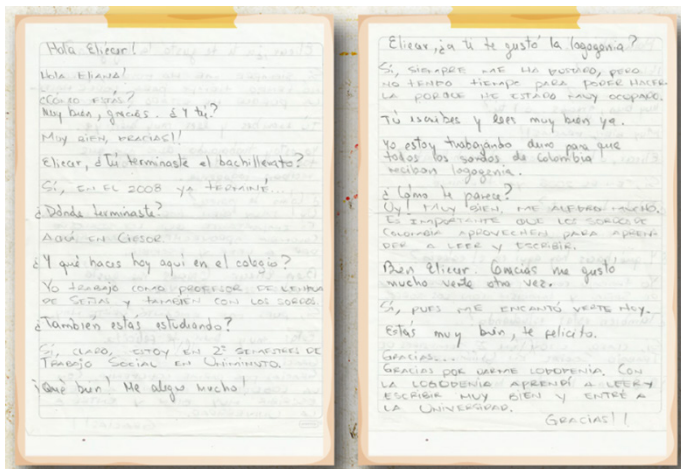 Hola Eliecer!
HOLA ELIANA!
¿CÓMO ESTÁS?
Muy bien, gracias. ¿Y tú?
MUY BIEN, GRACIAS!!
Eliecer, ¿Tú terminaste el bachillerato?
SÍ, EN EL 2008 YA TERMINÉ...
¿Dónde terminaste?
AQUÍ EN CIESOR.
¿Y qué haces hoy aquí en el colegio?
YO TRABAJO COMO PROFESOR DE LENGUA
DE SEÑAS Y TAMBIÉN CON LOS SORDOS.
¿También estás estudiando?
SÍ, CLARO, ESTOY EN 2º SEMESTRES DE
TRABAJO SOCIAL EN UNIMINUTO.
¡Qué bien! Me alegro mucho!
Eliecer, ¿a ti te gustó la logogenia?
SÍ, SIEMPRE ME HA GUSTADO, PERO
NO TENGO TIEMPO PARA PODER HACER
LA PORQUE HE ESTADO MUY OCUPADO.
Tú escribes y lees muy bien ya.
Yo estoy trabajando duro para que
todos los sordos de Colombia
reciban logogenia.
¿Cómo te parece?
UY! MUY BIEN, ME ALEGRO MUCHO.
ES IMPORTANTE QUE LOS SORDOS DE
COLOMBIA APROVECHEN PARA APREN-
DER A LEER Y ESCRIBIR.
Bien Eliecer. Gracias me gusto
mucho verte otra vez.
SÍ, PUES ME ENCANTÓ VERTE HOY.
Estás muy bien, te felicito.
GRACIAS...
GRACIAS POR DARME LOGOGENIA. CON
LA LOGOGENIA APRENDÍ A LEER Y
ESCRIBIR MUY BIEN Y ENTRÉ A
LA UNIVERSIDAD.
GRACIAS!!